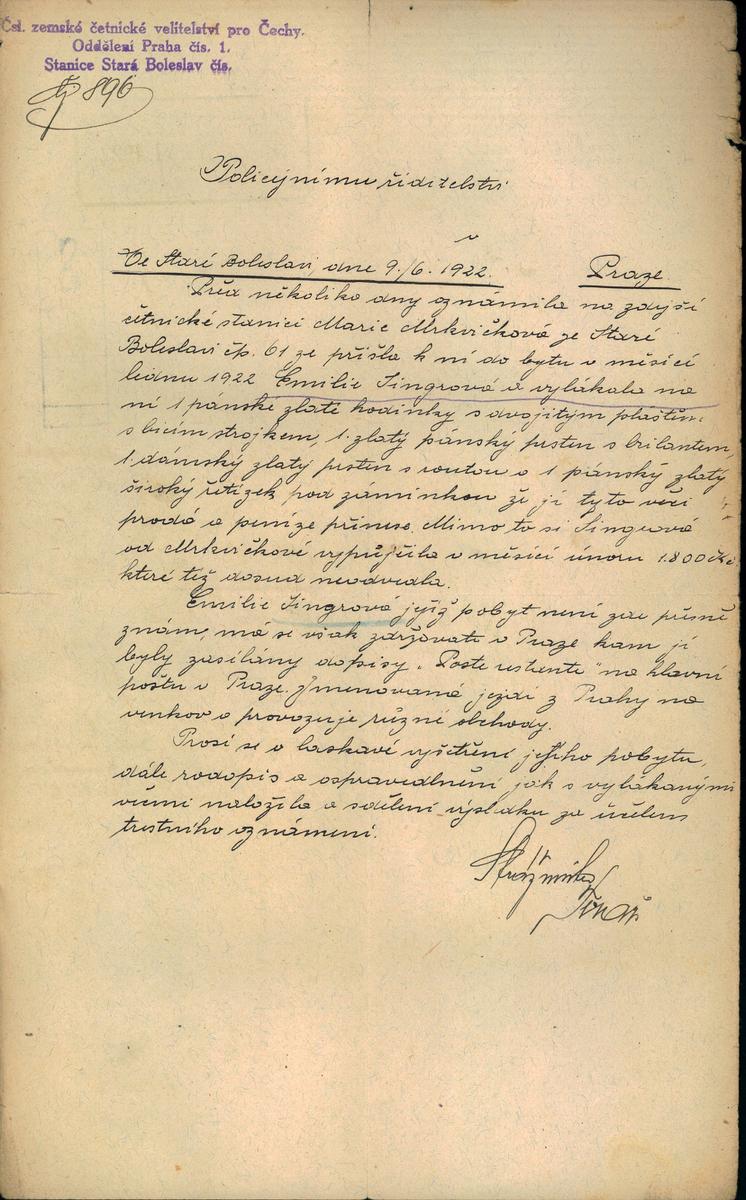 Čsl. zemské četnické velitelství pro Čechy.
Oddělení Praha čís. 1.
Stanice Stará Boleslav čís.
896
Policejnímu ředitelství
v
Ve Staré Boleslavi, dne 9./6. 1922. Praze.
Před několika dny oznámila na zdejší
četnické stanici Marie Mrkvičková ze Staré
Boleslavi čp. 61 že přišla k ní do bytu v měsíci
lednu 1922 Emilie Singrová a vylákala na
ní 1 pánské zlaté hodinky s dvojitým pláštěm
s bicím strojkem, 1 zlatý pánský prsten s brilantem,
1 dámský zlatý prsten s routou a 1 pánský zlatý
široký řetízek pod záminkou že jí tyto věci
prodá a peníze přinese. Mimo to si Singrová
od Mrkvičkové vypůjčila v měsíci únoru 1.800 čkč
které též dosud neodvedla.
Emilie Singrová jejíž pobyt není zde přesně
znám, má se však zdržovati v Praze kam jí
byly zasílány dopisy „Poste restante" na hlavní
poštu v Praze. Jmenovaná jezdí z Prahy na
venkov a provozuje různé obchody.
Prosí se o laskavé vyšetření jejího pobytu,
dále rodopis a ospravedlnění jak s vylákanými
věcmi naložila a sdělení výsledku za účelem
trestního oznámení.
Strážmistr